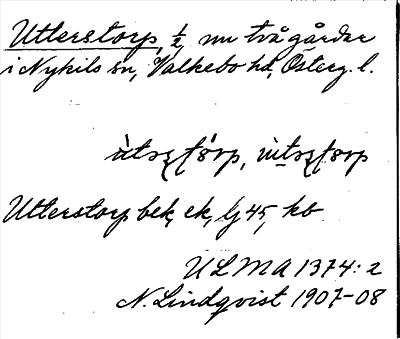 Utterstorp, 1/2, nu två gårdar
i Nykils sn, Valkebo hd, Österg. l.
Utterstorp bek, ek, lj 45, kb
ULMA 1374:2
N. Lindqvist 1907-08